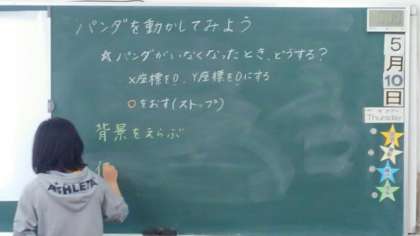 パンダを動かしてみよう
☆パンダがいなくなったとき、どうする?
X座標を0、Y座標を0にする
○をおす(ストップ)
背景をえらぶ
5
月
10
日
Thursday
ATHLETA